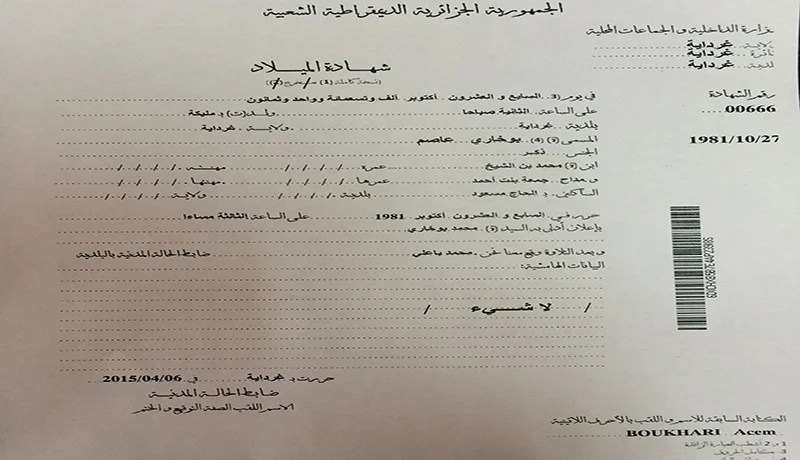 الجمهورية الجزائرية الديمقراطية الشعبية
وزارة الداخلية و الجماعات المحلية
ولاية غرداية
دائرة غرداية
بلدية غرداية
شهادة الميلاد
(نسخة كاملة (1)
رقم الشهادة
00666
1981/10/27
في يوم (3) السابع و العشرون أكتوبر ألف وتسعمائة وواحد وثمانون
على الساعة الثانية صباحا ولد(ت) بـ مليكة
بلدية غرداية ولاية غرداية
المسمى (ة) (4) بوخاري عاصم
الجنس ذكر
ابن (ة) محمد بن الشيخ عمره / / / / / مهنته / / / /
و مداح جمعة بنت أحمد عمرها / / / / / مهنتها / / / / /
الساكنين بـ الحاج مسعود بلدية / / / / / ولاية / / / / /
حرر في السابع و العشرون أكتوبر 1981 على الساعة الثالثة مساءا
بإعلان أدلى به السيد (ة) محمد بوخاري
و بعد التلاوة وقع معنا نحن محمد باعلي ضابط الحالة المدنية بالبلدية
البيانات الهامشية:
/ لا شـــيء /
حررت بـ غرداية في 2015/04/06
ضابط الحالة المدنية
الاسم اللقب الصفة التوقيع و الختم
الكتابة السابقة للاسم و اللقب بالأحرف اللاتينية
BOUKHARI Acem
1 و 2 أشطب العبارة الزائدة
3 بكامل الحروف